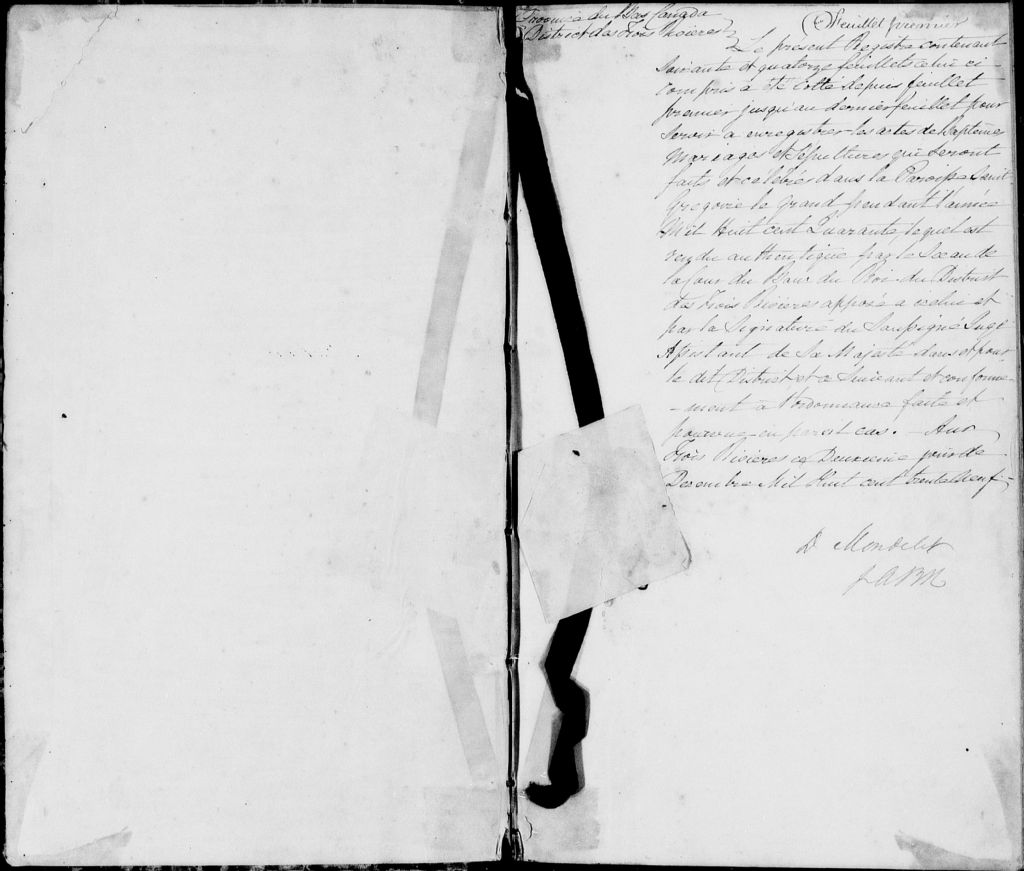 Province du Bas Canada
District des Trois Rivieres
Feuillet premier
Le présent Registre contenant
Soixante et quatorze feuillets celui ci
compris a été cotté depuis feuillet
premier jusqu'au dernier feuillet pour
servir a enregistrer les actes de Baptêmes
Mariages et Sépultures qui seront
faits et célébrés dans la Paroisse Saint
Grégoire le Grand pendant l'année
Mil Huit cent Quarante, lequel est
rendu authentique par le Sceau de
la Cour du Banc du Roi du District
des Trois Rivieres apposé a icelui et
par la Signature du Soussigné Juge
Assistant de Sa Majesté dans et pour
le dit District et a Suivant et conforme-
-ment à l'ordonnance faite et
pourvue en pareil cas. - Aux
Trois Rivieres ce Deuxieme jour de
Decembre Mil Huit cent trente neuf -
D Mondelet